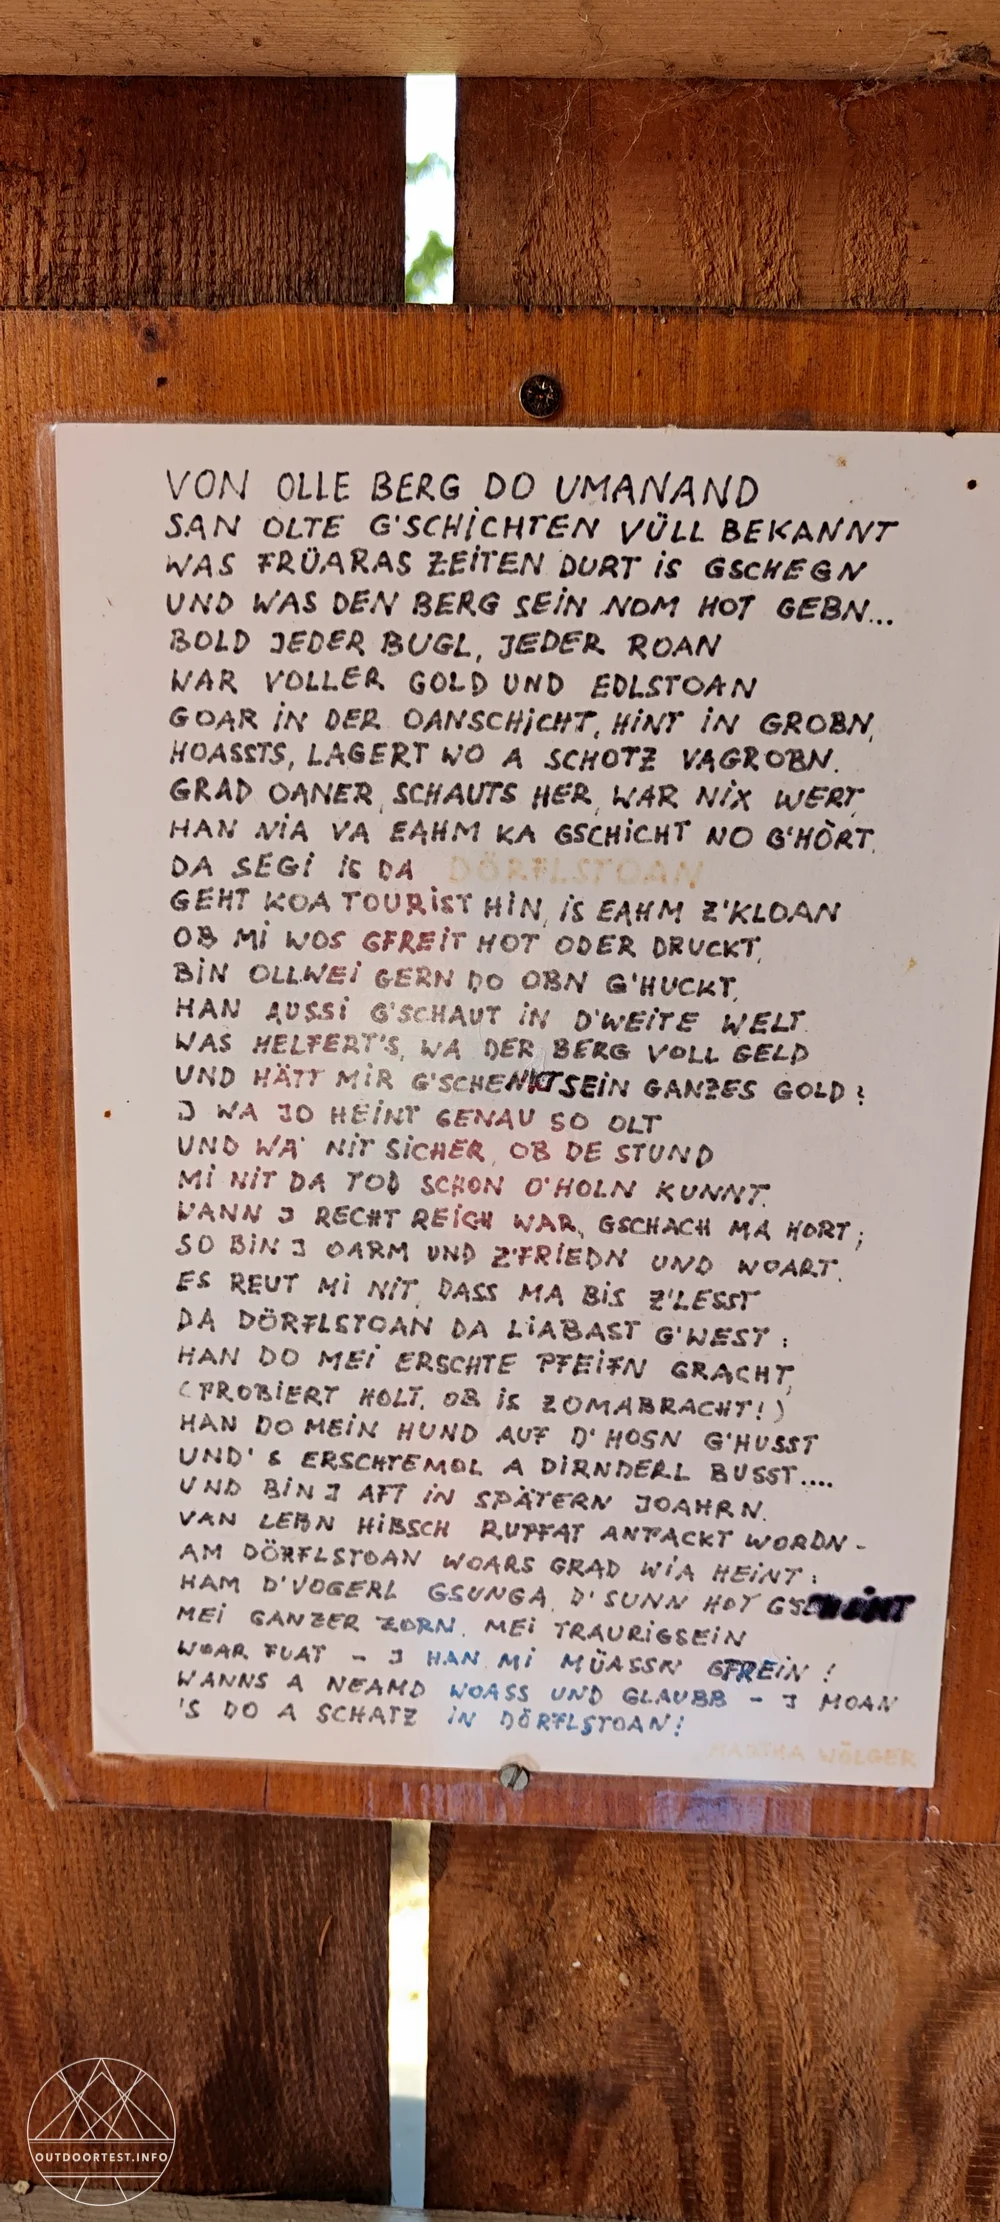 VON OLLE BERG DO UMANAND
SAN OLTE G'SCHICHTEN VÜLL BEKANNT
WAS FRÜARAS ZEITEN DURT IS GSCHEGN
UND WAS DEN BERG SEIN NOM HOT GEBN...
BOLD JEDER BUGL, JEDER ROAN
WAR VOLLER GOLD UND EDLSTOAN
GOAR IN DER OANSCHICHT, HINT IN GROBN,
HOASSTS, LAGERT WO A SCHOTZ VAGROBN.
GRAD OANER, SCHAUTS HER, WAR NIX WERT,
HAN NIA VA EAHM KA GSCHICHT NO G'HÒRT.
DA SEGI IS DA DÖRFLSTOAN
GEHT KOA TOURIST HIN, IS EAHM Z'KLOAN
OB MI WOS GFREIT HOT ODER DRUCKT,
BIN OLLWEI GERN DO OBN G'HUCKT,
HAN AUSSI G'SCHAUT IN D'WEITE WELT.
WAS HELFERT'S, WA DER BERG VOLL GELD
UND HÄTT MIR G'SCHENKT SEIN GANZES GOLD?
I WA JO HEINT GENAU SO OLT
UND WA' NIT SICHER, OB DE STUND
MI NIT DA TOD SCHON O'HOLN KUNNT.
WANN I RECHT REICH WAR, GSCHACH MA HORT;
SO BIN I OARM UND Z'FRIEDN UND WOART.
ES REUT MI NIT, DASS MA BIS Z'LESST
DA DÖRFLSTOAN DA LIABAST G'WEST:
HAN DO MEI ERSCHTE PFEIFN GRACHT,
(PROBIERT HOLT, OB IS ZOMABRACHT!)
HAN DO MEIN HUND AUF D'HOSN G'HUSST
UND'S ERSCHTEMOL A DIRNDERL BUSST....
UND BIN I AFT IN SPÄTERN JOAHRN
VAN LEBN HIBSCH RUPFAT ANPACKT WORDN-
AM DÖRFLSTOAN WOARS GRAD WIA HEINT:
HAM D'VOGERL GSUNGA, D'SUNN HOT GSCHEINT
MEI GANZER ZORN, MEI TRAURIGSEIN
WOAR FUAT - I HAN MI MÜASSN GFREIN!
WANNS A NEAMD WOASS UND GLAUBB - I MOAN
'S DO A SCHATZ IN DÖRFLSTOAN!
MARTHA WÖLGER
OUTDOORTEST.INFO